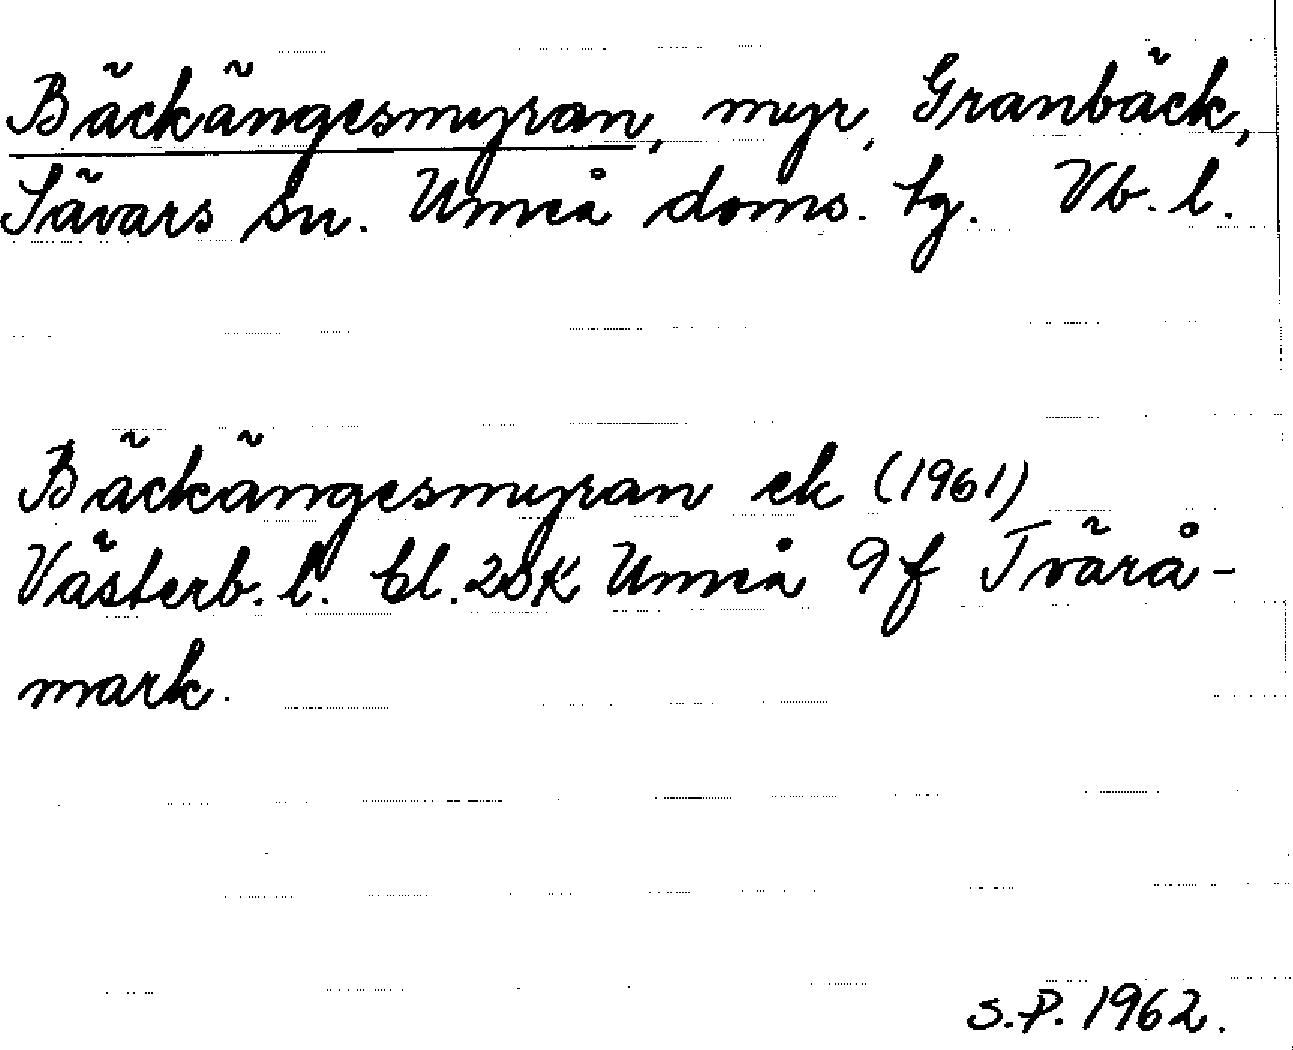 Bäckängesmyran, myr, Granbäck,
Sävars sn. Umeå doms. tg. Vb. l.
Bäckängesmyran ek (1961)
Västerb. l. bl. 20K Umeå 9f Tvärå-
mark.
S.P. 1962.